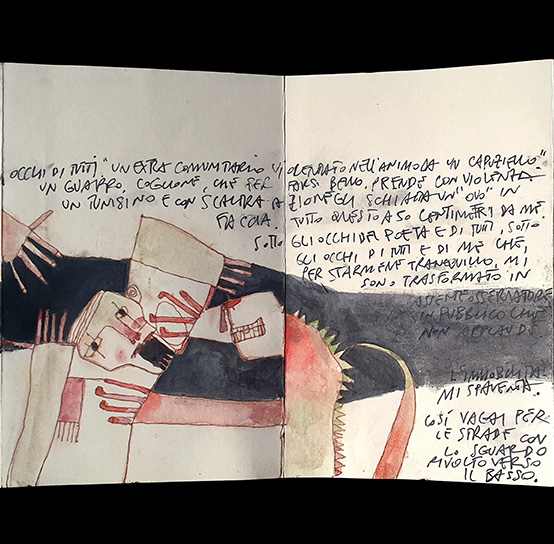 OCCHI DI TUTTI "UN EXTRA COMUNITARIO VIOLENTATO NELL'ANIMO DA UN CAPUZIELLO"
UN GUAPPO, COGLIONE, CHE PER FARSI BELLO, PRENDE CON VIOLENZA
UN TUNISINO E CON SCALTRA AZIONE GLI SCHIACCIA UN "OVO" IN
FACCIA. TUTTO QUESTO A 50 CENTIMETRI DA ME.
SOTTO GLI OCCHI DEL POETA E DI TUTTI, SOTTO
GLI OCCHI DI TUTTI E DI ME CHE,
PER STARMENE TRANQUILLO, MI
SONO TRASFORMATO IN
OSSERVATORE
IN PUBBLICO CHE
NON APPLAUDE
L'IMMOBILITÀ
MI SPAVENTA.
COSÌ VAGAI PER
LE STRADE CON
LO SGUARDO
RIVOLTO VERSO
IL BASSO.